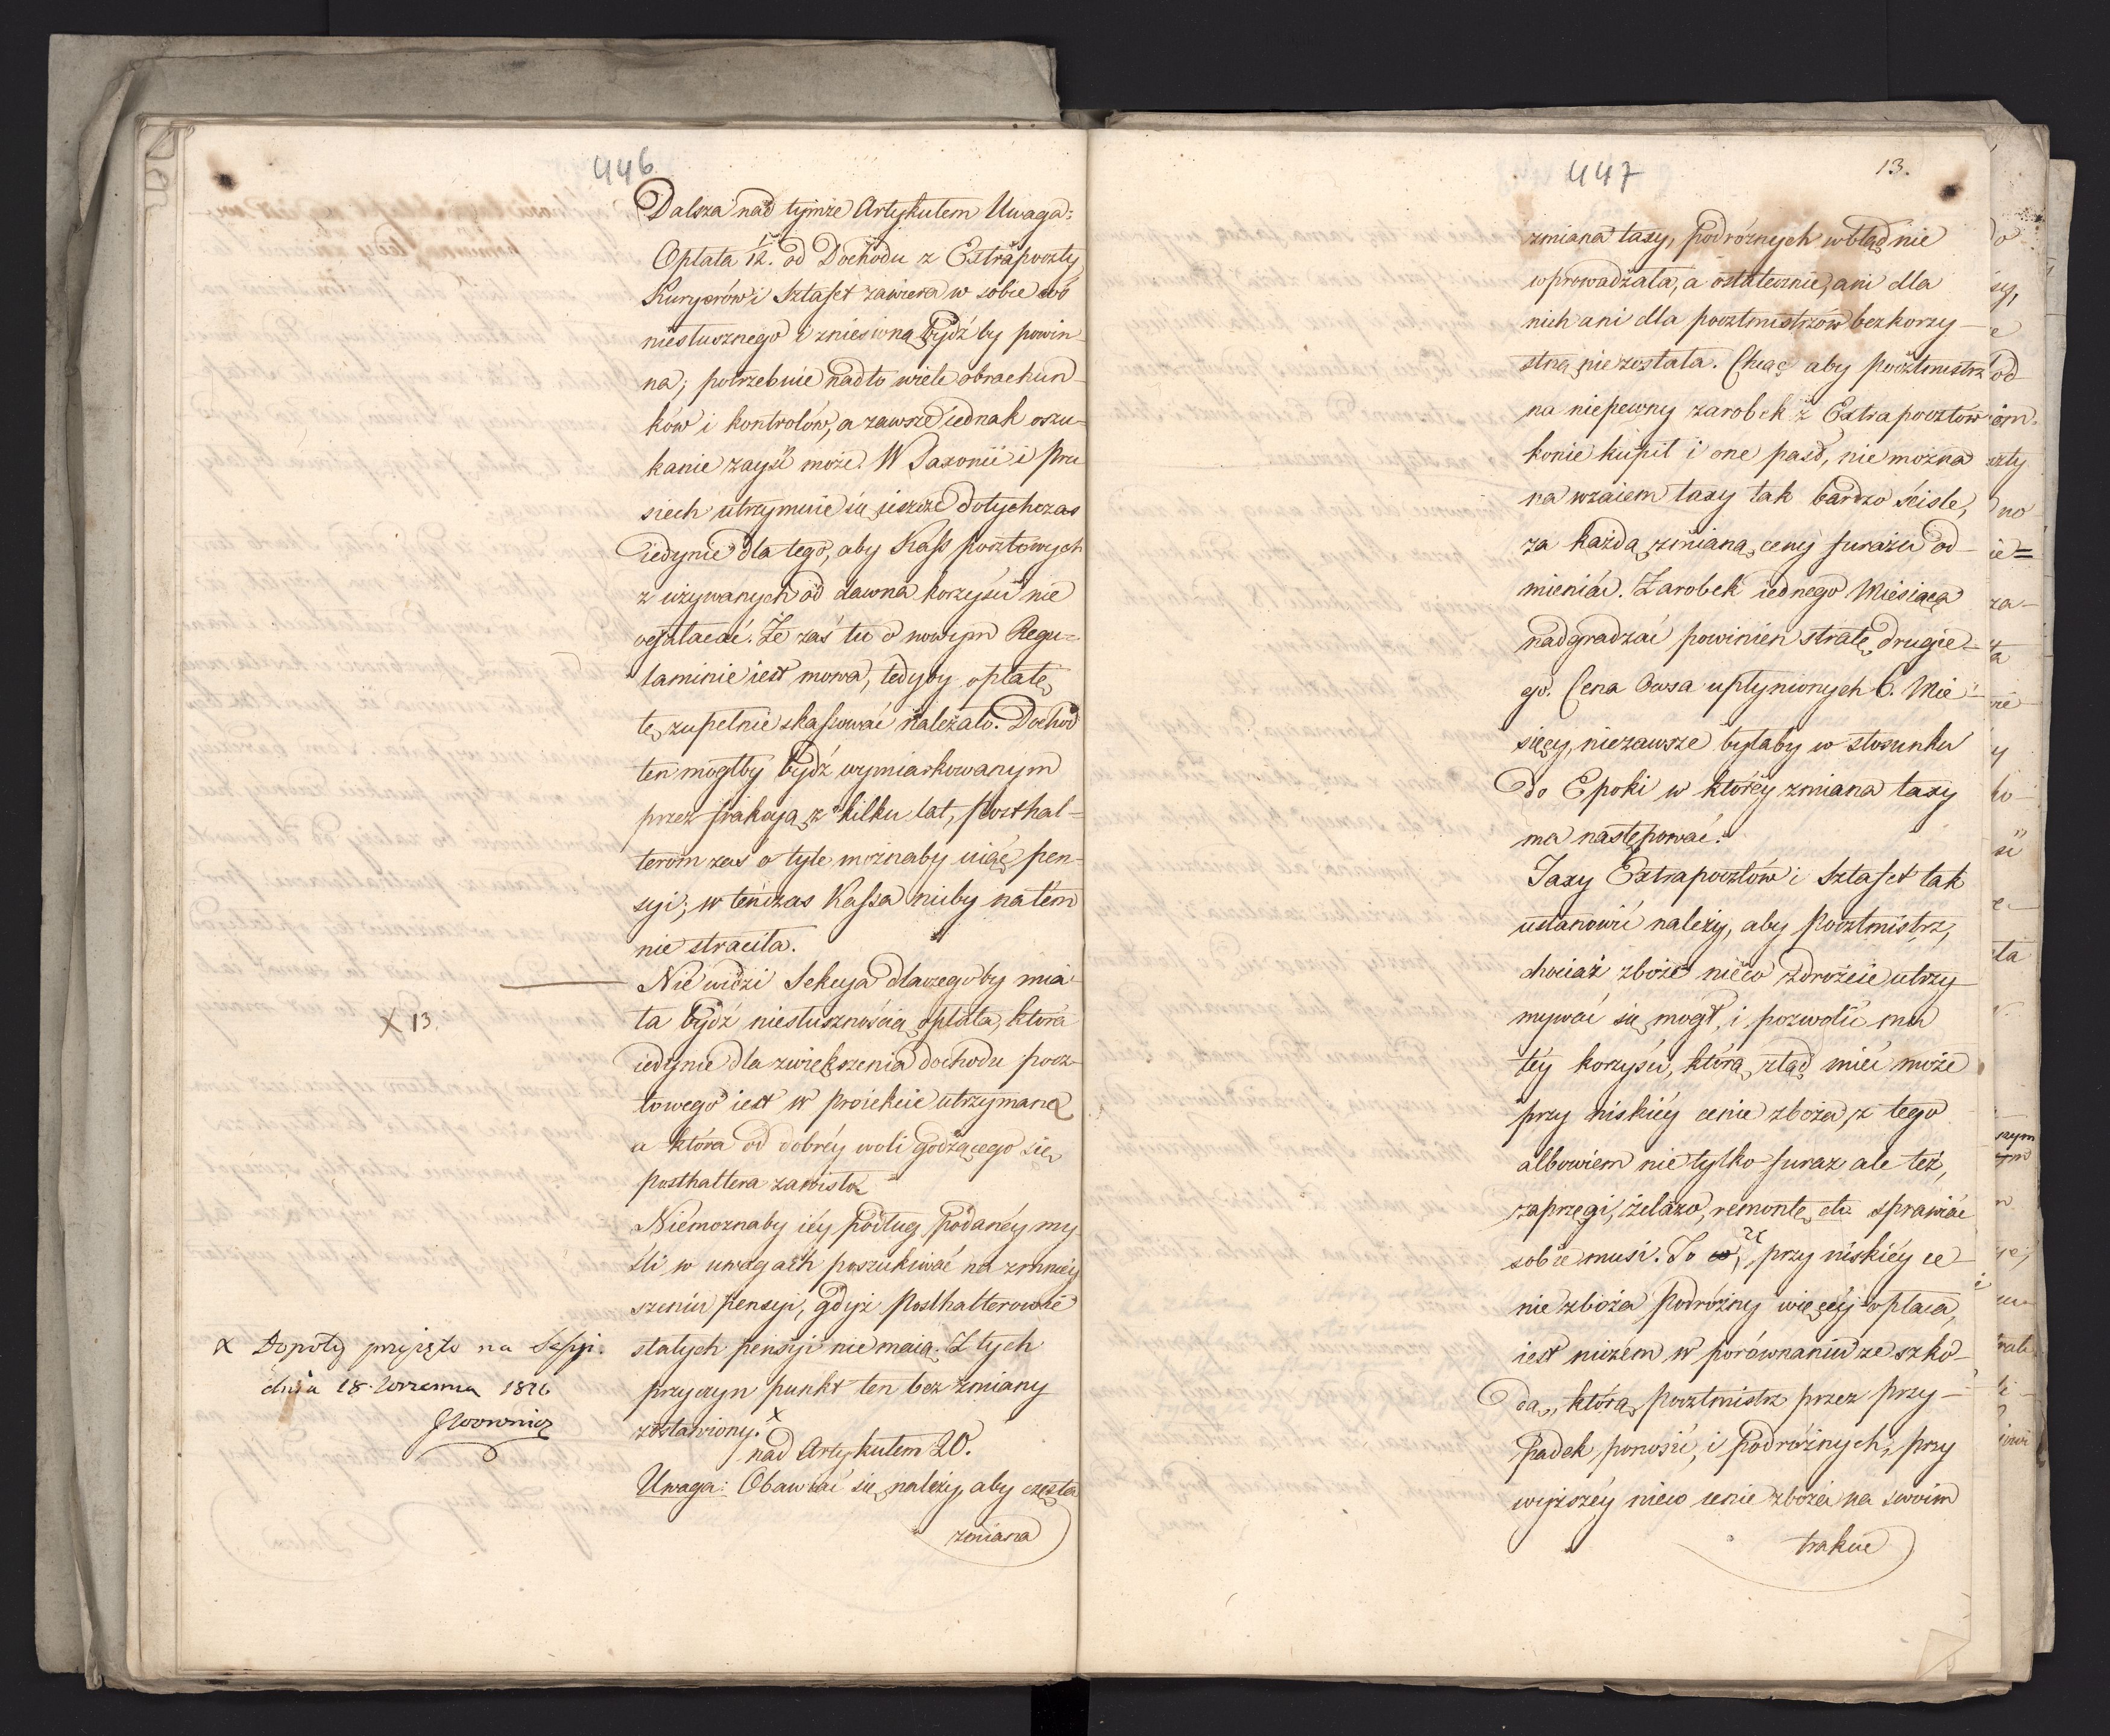 446
Dalsza nad tymże Artykułem Uwaga:
Opłata 1/12. od Dochodu z Extrapoczty
Kuryerów i Sztafet zawiera w sobie coś
niesłusznego i zniesioną bydź by powin-
na; potrzebuie nadto wiele obrachun-
ków i kontrolów, a zawsze iednak oszu-
kanie zayść może. W Saxonii i Pru
siech utrzymuie się ieszcze dotychczas
iedynie dla tego, aby Kass pocztowych
z używanych od dawna korzyści nie
ogałacać. Że zaś tu o nowym Regu-
laminie iest mowa, tedyby opłatę
tę zupełnie skassować należało. Dochod
ten mógłby bydź wymiarkowanym
przez frakcyą z kilku lat, Poszthal-
terom zaś o tyle możnaby uiąć pen-
syi; w tenczas Kassa niby na tém
nie straciła.
Nie widzi Sekcya dlaczegoby mia-
ła bydź niesłusznością opłata, która
iedynie dla zwiększenia dochodu pocz-
towego iest w proiekcie utrzymaną
a która od dobréy woli godzącego się
posthaltera zawisła
Niemoznaby iéy podług podanéy my
śli w uwagach poszukiwać na zmniey
szeniu pensyi, gdyż Posthalterowie
stałych pensyi nie maią. Z tych
przyczyn punkt ten bez zmiany
zostawiony. x
nad Artykułem 20.
Uwaga: Obawiać się należy, aby częsta
zmiana
X 13.
x Dopóty przyjęto na Sessyi.
dnia 18. Września 1816
447
13.
zmiana taxy, podróżnych w błąd nie
wprowadzała, a ostatecznie, ani dla
nich ani dla pocztmistrzów bezkorzy-
stną nie została. Chcąc aby pocztmistrz
na niepewny zarobek z Extrapocztów
konie kupił i one pasł, nie można
na wzaiem taxy tak bardzo ściśle,
za każdą zmianą ceny furażu od-
mieniać. Zarobek iednego Miesiąca
nadgradzać powinien stratę drugie-
go. Cena Owsa upłynionych 6. Mie-
sięcy, niezawsze byłaby w stosunku
do Epoki w któréy zmiana taxy
ma następować.
Taxy Extrapocztów i Sztafet tak
ustanowić należy, aby Pocztmistrz,
chociaż zboże nieco zdrożeie utrzy-
mywać się mógł, i pozwolić mu
téy korzyści, którą ztąd mieć może
przy niskiéy cenie zboża, z tego
albowiem nie tylko furaż ale też,
zaprzęgi, żelazo, remontę etc. sprawiać
sobie musi. To co, przy niskiéy ce-
nie zboża Podróżny więcéy opłaca,
iest niczém w porównaniu ze szko-
dą, którą pocztmistrz przez przy-
padek ponosić, i podróżnych, przy
wyższéy nieco cenie zboża na swoim
trakcie